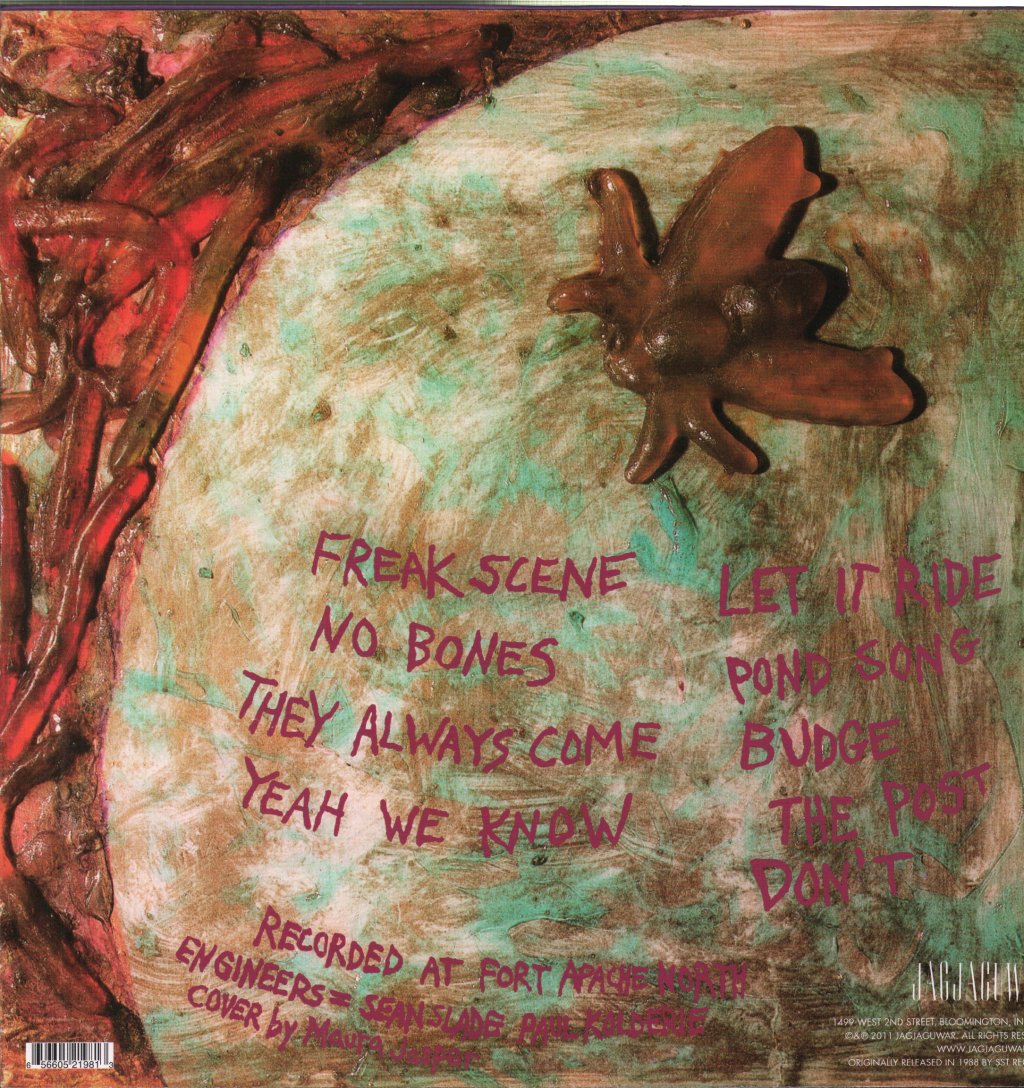 FREAK SCENE
NO BONES
THEY ALWAYS COME
YEAH WE KNOW
LET IT RIDE
POND SONG
BUDGE
THE POST
DON'T
RECORDED AT FORT APACHE NORTH
ENGINEERS = SEAN SLADE PAUL KOLDERIE
COVER by Maura Jasper
JAGJAGUW
1499 WEST 2ND STREET, BLOOMINGTON, IN
©&℗ 2011 JAGJAGUWAR. ALL RIGHTS RES
WWW.JAGJAGUWAR
ORIGINALLY RELEASED IN 1988 BY SST REC
6 56605 21981 3